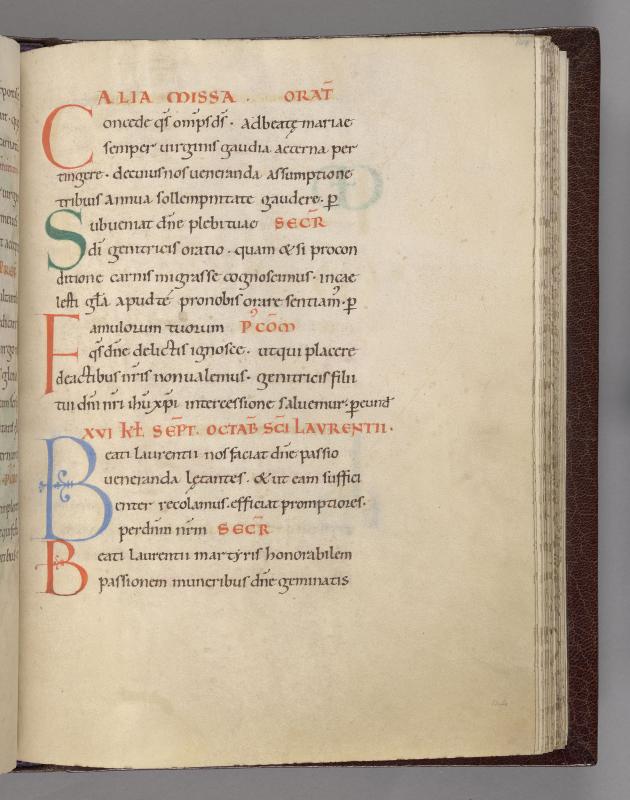 ALIA MISSA . ORAT̄
Concede q̄s om̄ps d̄s . ad beatę mariae
semper uirginis gaudia aeterna per
tingere . de cuius nos ueneranda assumptione
tribuis annua sollempnitate gaudere . p̄
Subueniat dn̄e plebi tuae SECR̄
dī genitricis oratio . quam & si procon
ditione carnis migrasse cognoscimus . in cae
lesti gl̄a apud té pro nobis orare sentiam᾽ . p̄
Famulorum tuorum P᾽ CŌM
q̄s dn̄e delictis ignosce . ut qui placere
de actibus nr̄is non ualemus . genitricis filii
tui dn̄i nr̄i ihū xp̄i intercessione saluemur . p̄ eund̄
XVI KL̄ SEPT̄. OCTAB̄ SC̄I LAVRENTII .
Beati laurentii nos faciat dn̄e passio
ueneranda lętantes . & ut eam suffici
enter recolamus . efficiat promptiores .
per dn̄m nr̄m SECR̄
Beati laurentii martyris honorabilem
passionem muneribus dn̄e geminatis